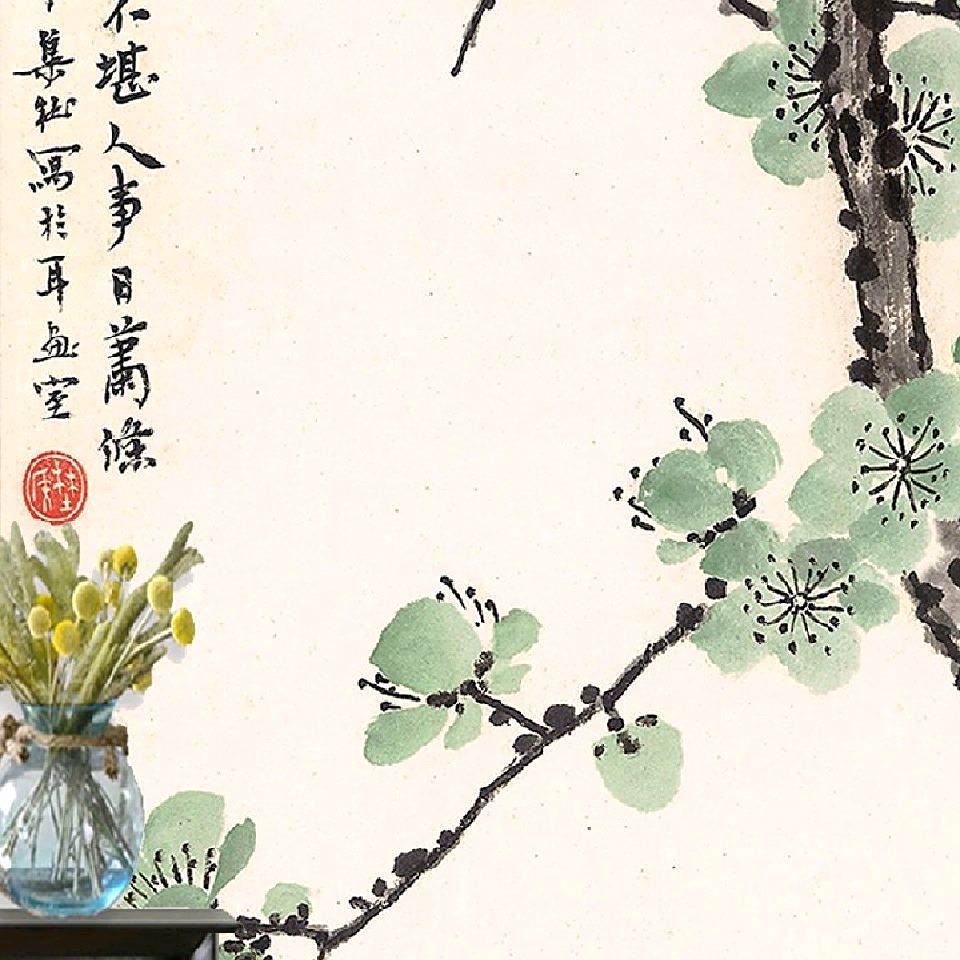 不堪人事日蕭條
集樹寫於耳画室